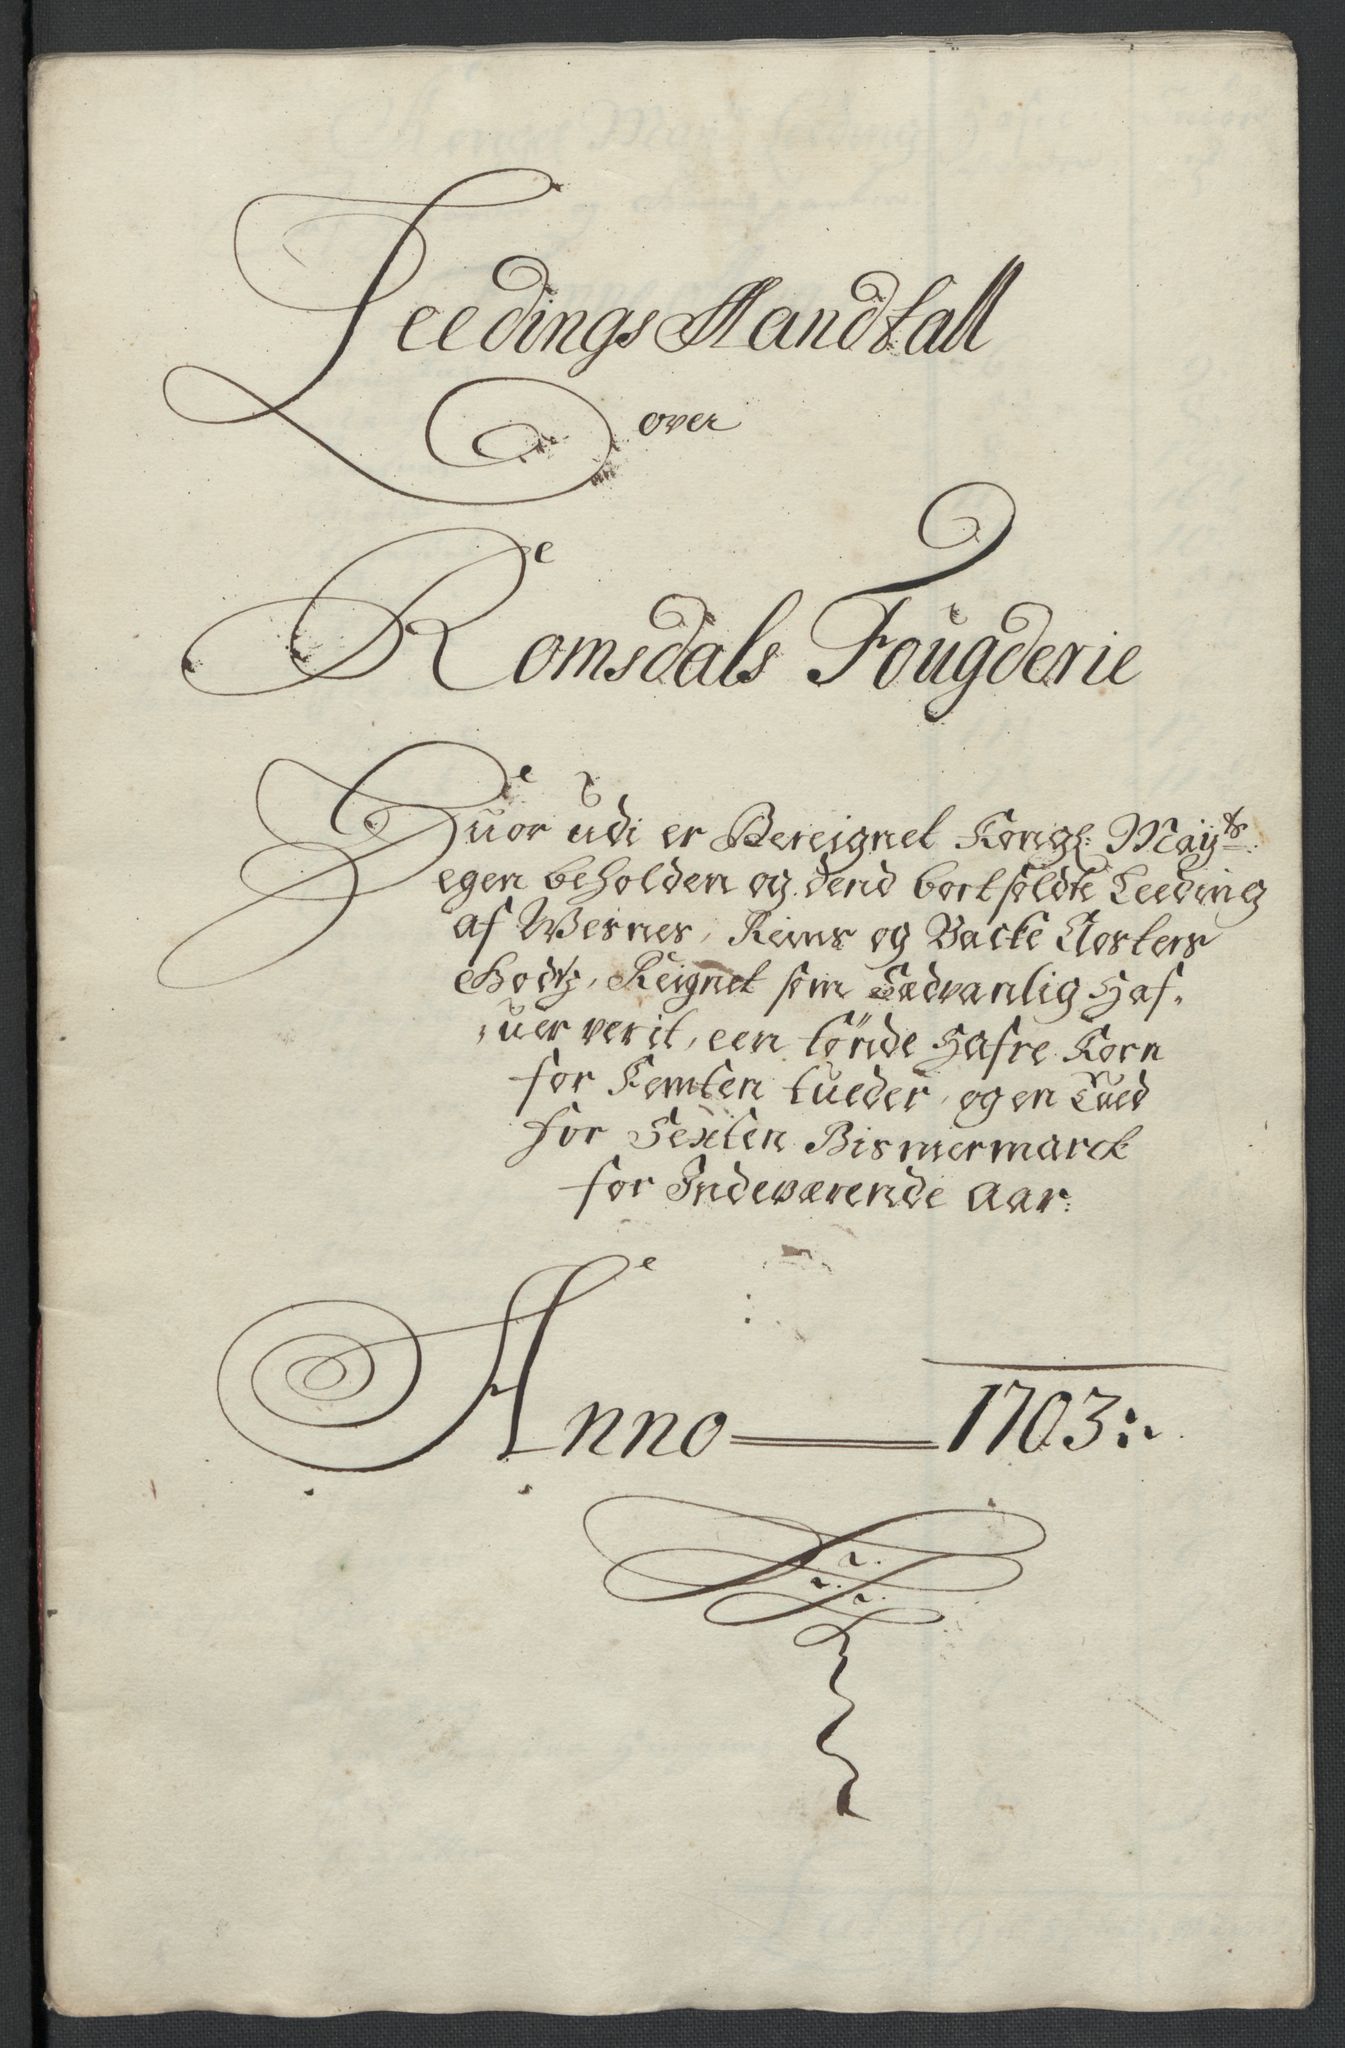 Leedings Mandtall
over
Romsdals Fougderie
Huor udi er Bereignet Kongl: Mayts
egen beholden og dend bortsoldte Leeding
af Wesnes, Reins og Backe Closters
Godtz, Reignet som Sædvanlig Haf-
uer verit, een tönde Hafre Korn
for Femten Lueder, og en Lued
for Sexten Bismermarck
for Indeværende Aar:
Anno 1703: